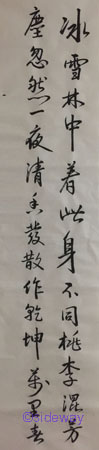 冰雪林中着此身不同桃李混芳
塵忽然一夜清香發散作乾坤萬里春
©sideway